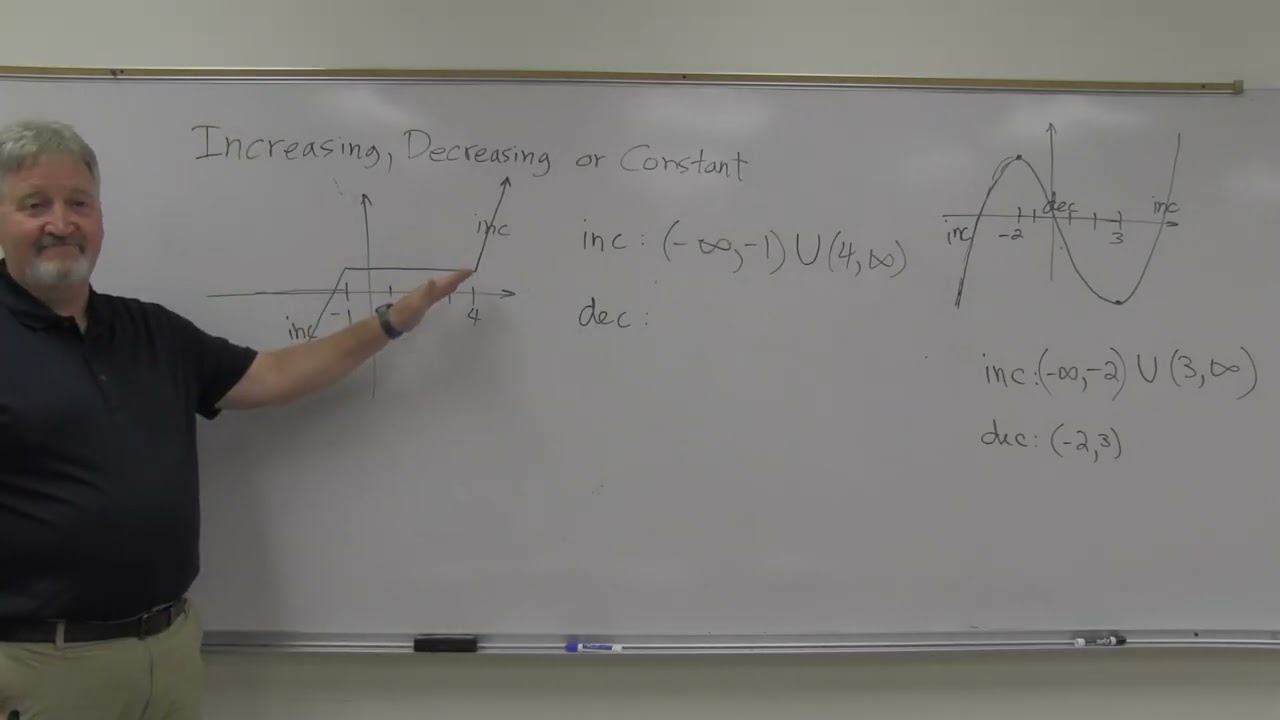 Increasing, Decreasing or Constant
inc
inc
-1
4
inc: (-∞,-1) ∪ (4,∞)
dec:
inc
dec
inc
-2
3
inc:(-∞,-2) ∪ (3,∞)
dec: (-2,3)